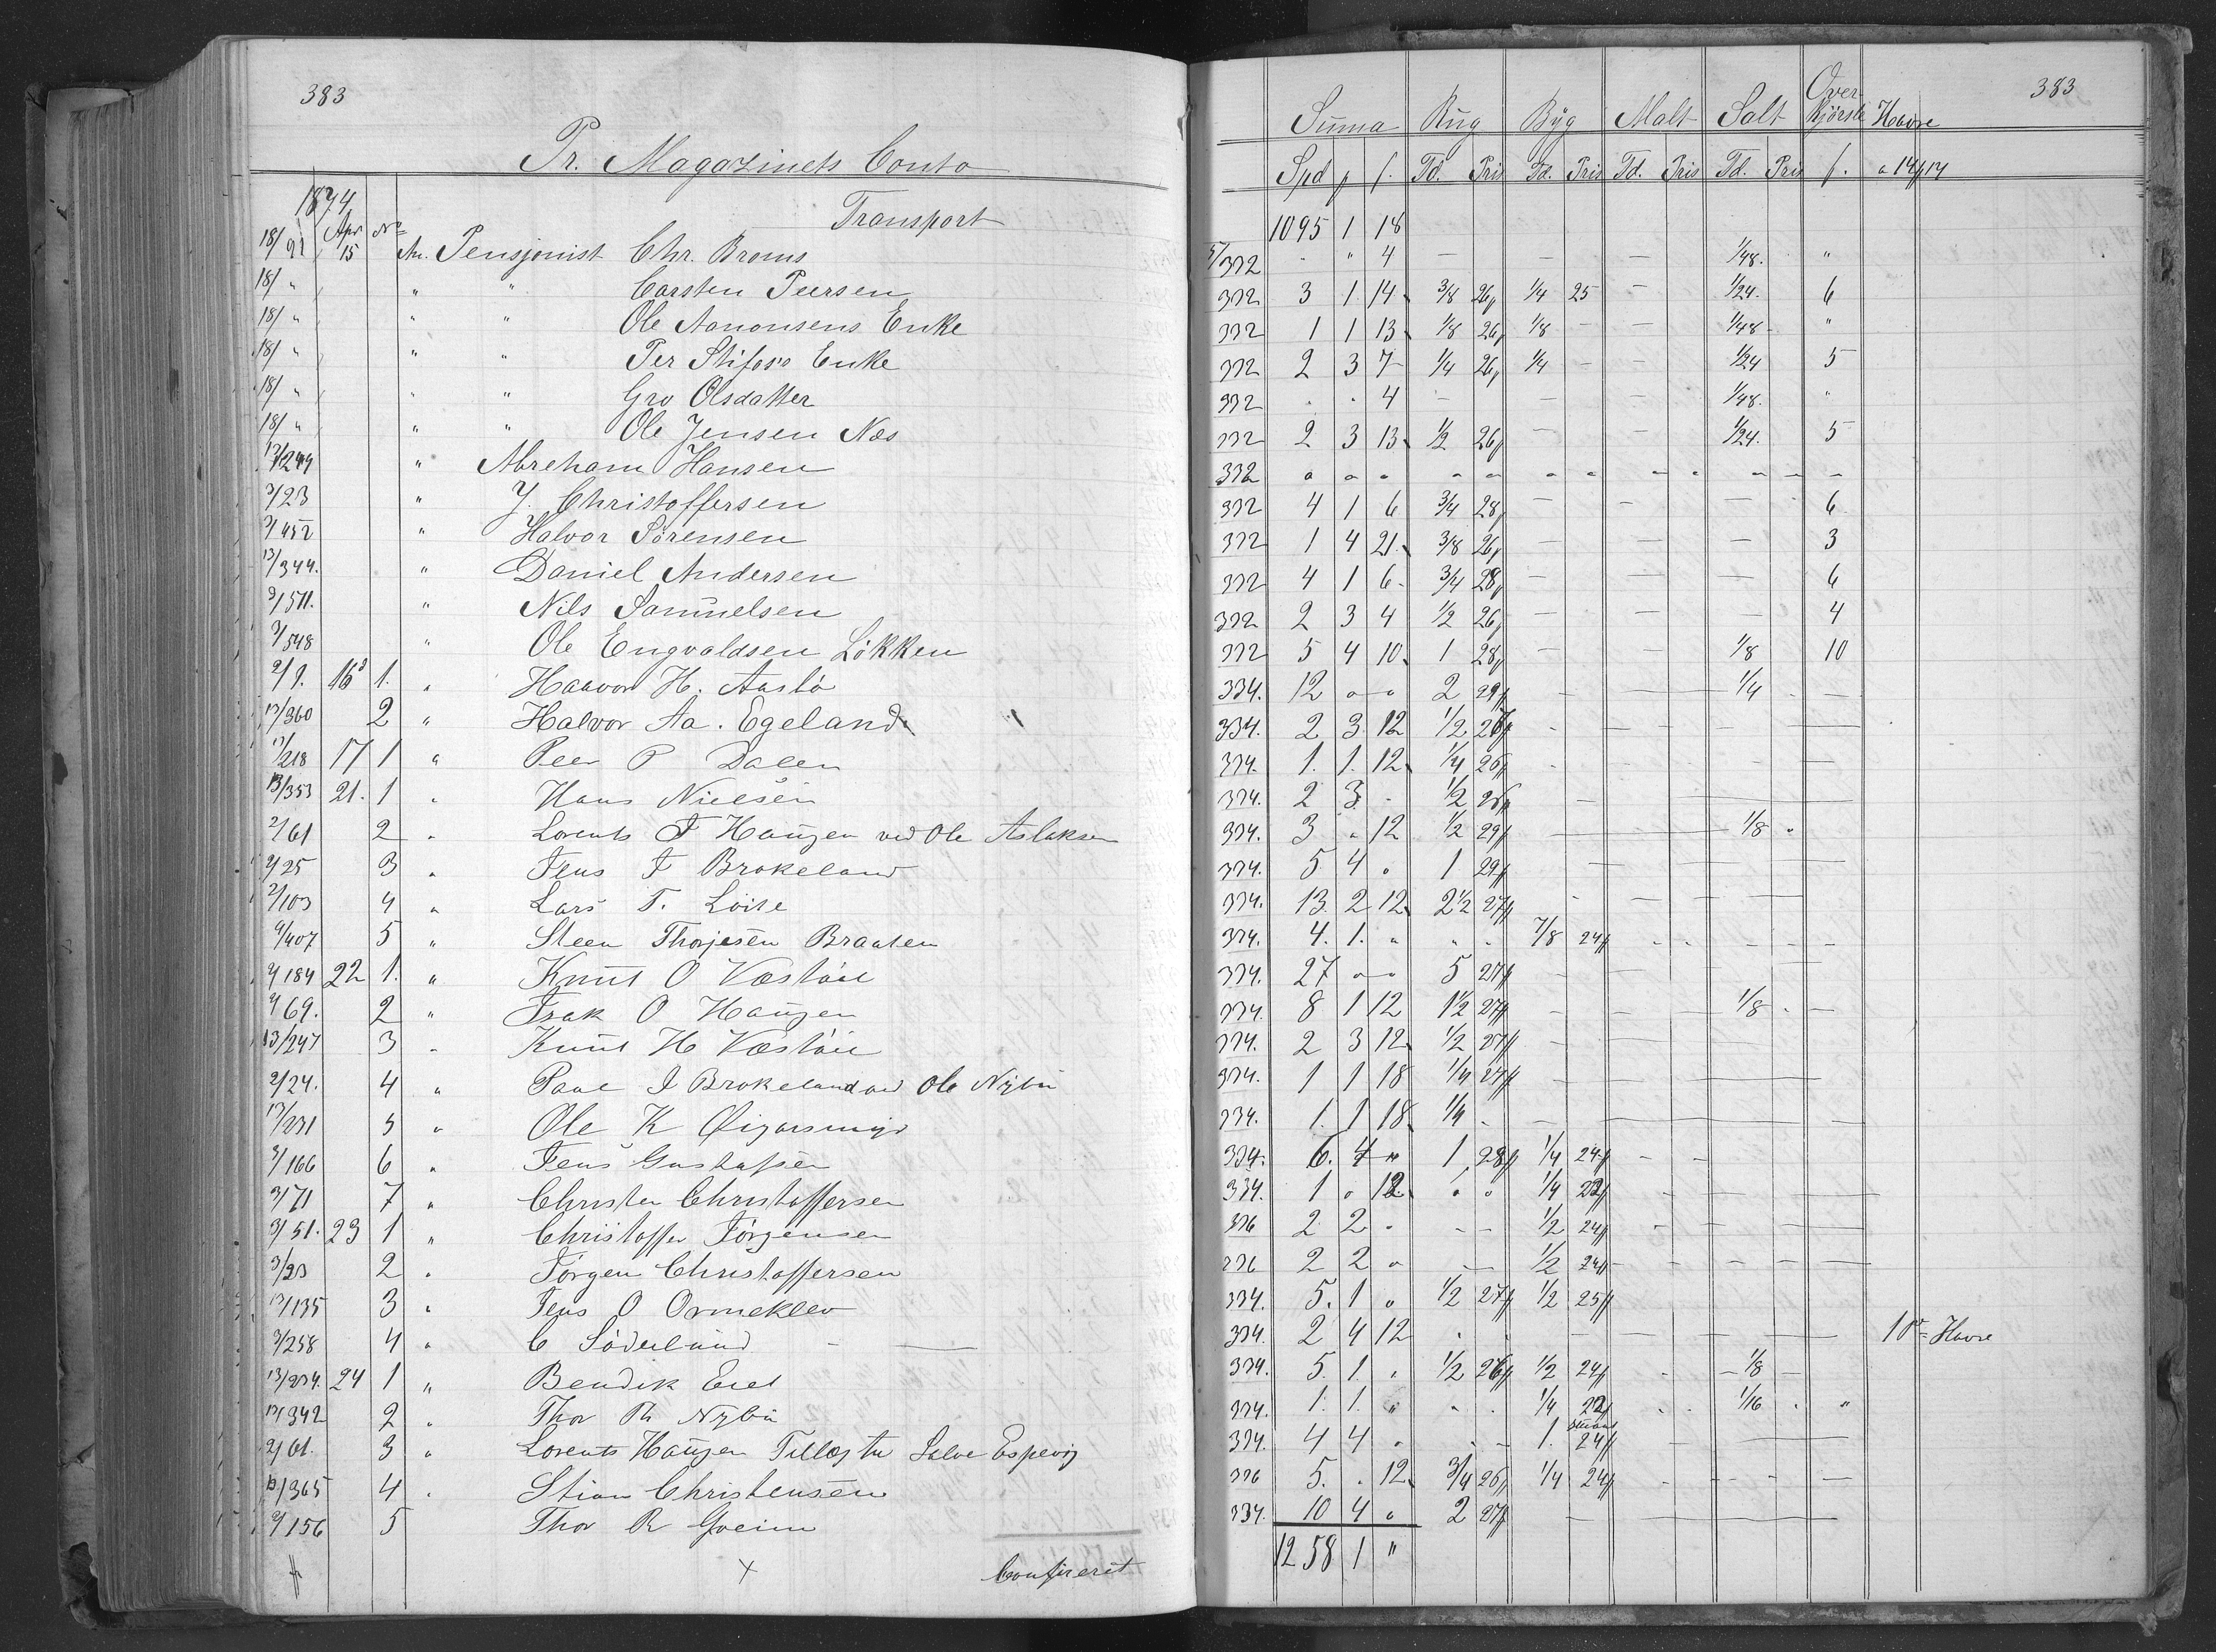 383
Pr. Magazinets Conto
1874
Transport
18/91 Apr 15 No An. Pensjonist Chr. Broms
18/ " " " Carsten Peersen
18/ " " " Ole Aanonsens Enke
18/ " " " Per Enke
18/ " " " Gro Olsdatter
18/ " " " Ole Jensen Næs
13/249 " Abreham Hansen
3/23 " J. Christoffersen
3/452 " Halvor Sörensen
13/344. " Daniel Andersen
3/511. " Nils Samuelsen
3/548 " Ole Engvaldsen Løkken
2/9. 16 1. " H. Aaslö
13/360 2 " Halvor Aa. Egeland
13/218 17 1 " Peer P Dalen
13/353 21. 1 " Hans Nielsen
2/61 2 " Lorents F Haugen ved Ole Aslaksen
2/25 3 " Jens J Brokeland
2/103 4 " Lars T.
9/407 5 " Steen Thorjesen Braaten
2/184 22 1. " Knut O
2/69. 2 " Isak O Haugen
13/247 3 " Knut H
2/24. 4 " Paul J Brokeland ved Ole Nybu
13/231 5 " Ole K
3/166 6 " Jens Gustafsen
3/71 7 " Christen Christoffersen
3/51. 23 1 " Christoffer Jörgensen
3/23 2 " Jörgen Christoffersen
13/135 3 " Jens O Ormeklev
3/258 4 " C Söderlund
13/234. 24 1 " Bendik Eiel
13/342 2 " Thor Th Nybu
2/61. 3 " Lorents Haugen Tillæg tu Salve Espevig
13/365 4 " Stian Christensen
2/156 5 Thor R
X Confereret
383
Summa Rug Byg Malt Salt Over Kjörsle Havre
Spd f. Td. Pris Td. Pris Td. Pris Td. Pris f. a 14
1095 1 18
332 " " 4 — — — 1/48. "
332 3 1 14 3/8 26 1/4 25 — 1/24. 6
332 1 1 13 1/8 26 1/8 — — 1/48 "
332 2 3 7 1/4 26 1/4 — — 1/24 5
332 " " 4 — — — 1/48. "
332 2 3 13 1/2 26 — — 1/24. 5
332 " " " " " " " " " " " "
332 4 1 6 3/4 28 — — — 6
332 1 4 21. 3/8 26 — — — 3
332 4 1 6 3/4 28 — — — 6
332 2 3 4 1/2 26 — — — 4
332 5 4 10 1 28 — — 1/8 10
334. 12 " " 2 29 — — 1/4 —
334. 2 3 12 1/2 —
334. 1. 1. 12 1/4 26 —
334. 2 3 - 1/2 26 —
334. 3 " 12 1/2 29 — 1/8 "
334. 5 4 " 1 29 —
334. 13 2 12 2 1/2 27 —
334. 4. 1. " " " 7/8 24 — —
334. 27 " " 5 27 —
334. 8 1 12 1 1/2 27 — 1/8 —
334. 2 3 12 1/2 27 —
334. 1 1 18 1/4 27 —
334. 1. 1 18 1/4 " —
334. 6. 4 " 1 28 1/4 24 —
334. 1 " 12 " " 1/4 22 —
336 2 2 " — — 1/2 24 —
336 2 2 " — 1/2 24 —
334. 5. 1 " 1/2 27 1/2 25 —
334. 2 4 12 " " — 1 Havre
334. 5. 1. " 1/2 26 1/2 24 — 1/8 —
334. 1. 1. " " " 1/4 22 " " 1/16 " "
334. 4 4 " " — 1. 24 —
336 5. " 12 3/4 26 1/4 24 —
334. 10 4 " 2 27 —
1258 1 "